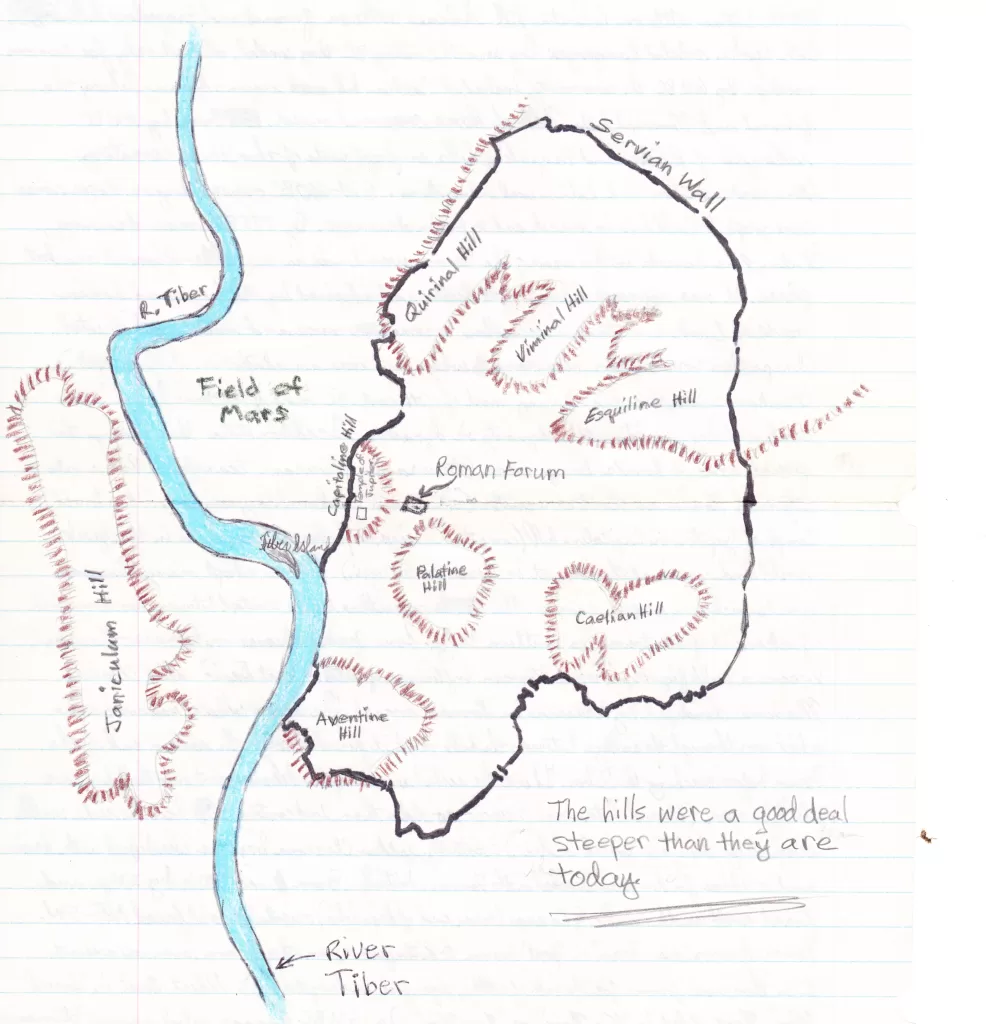 Servian Wall
Quirinal Hill
R. Tiber
Viminal Hill
Field of
Mars
Esquiline Hill
Capitoline Hill
Temple of
Jupiter
Roman Forum
Tiber Island
Palatine
Hill
Caelian Hill
Janiculum Hill
Aventine
Hill
The hills were a good deal
steeper than they are
today.
River
Tiber